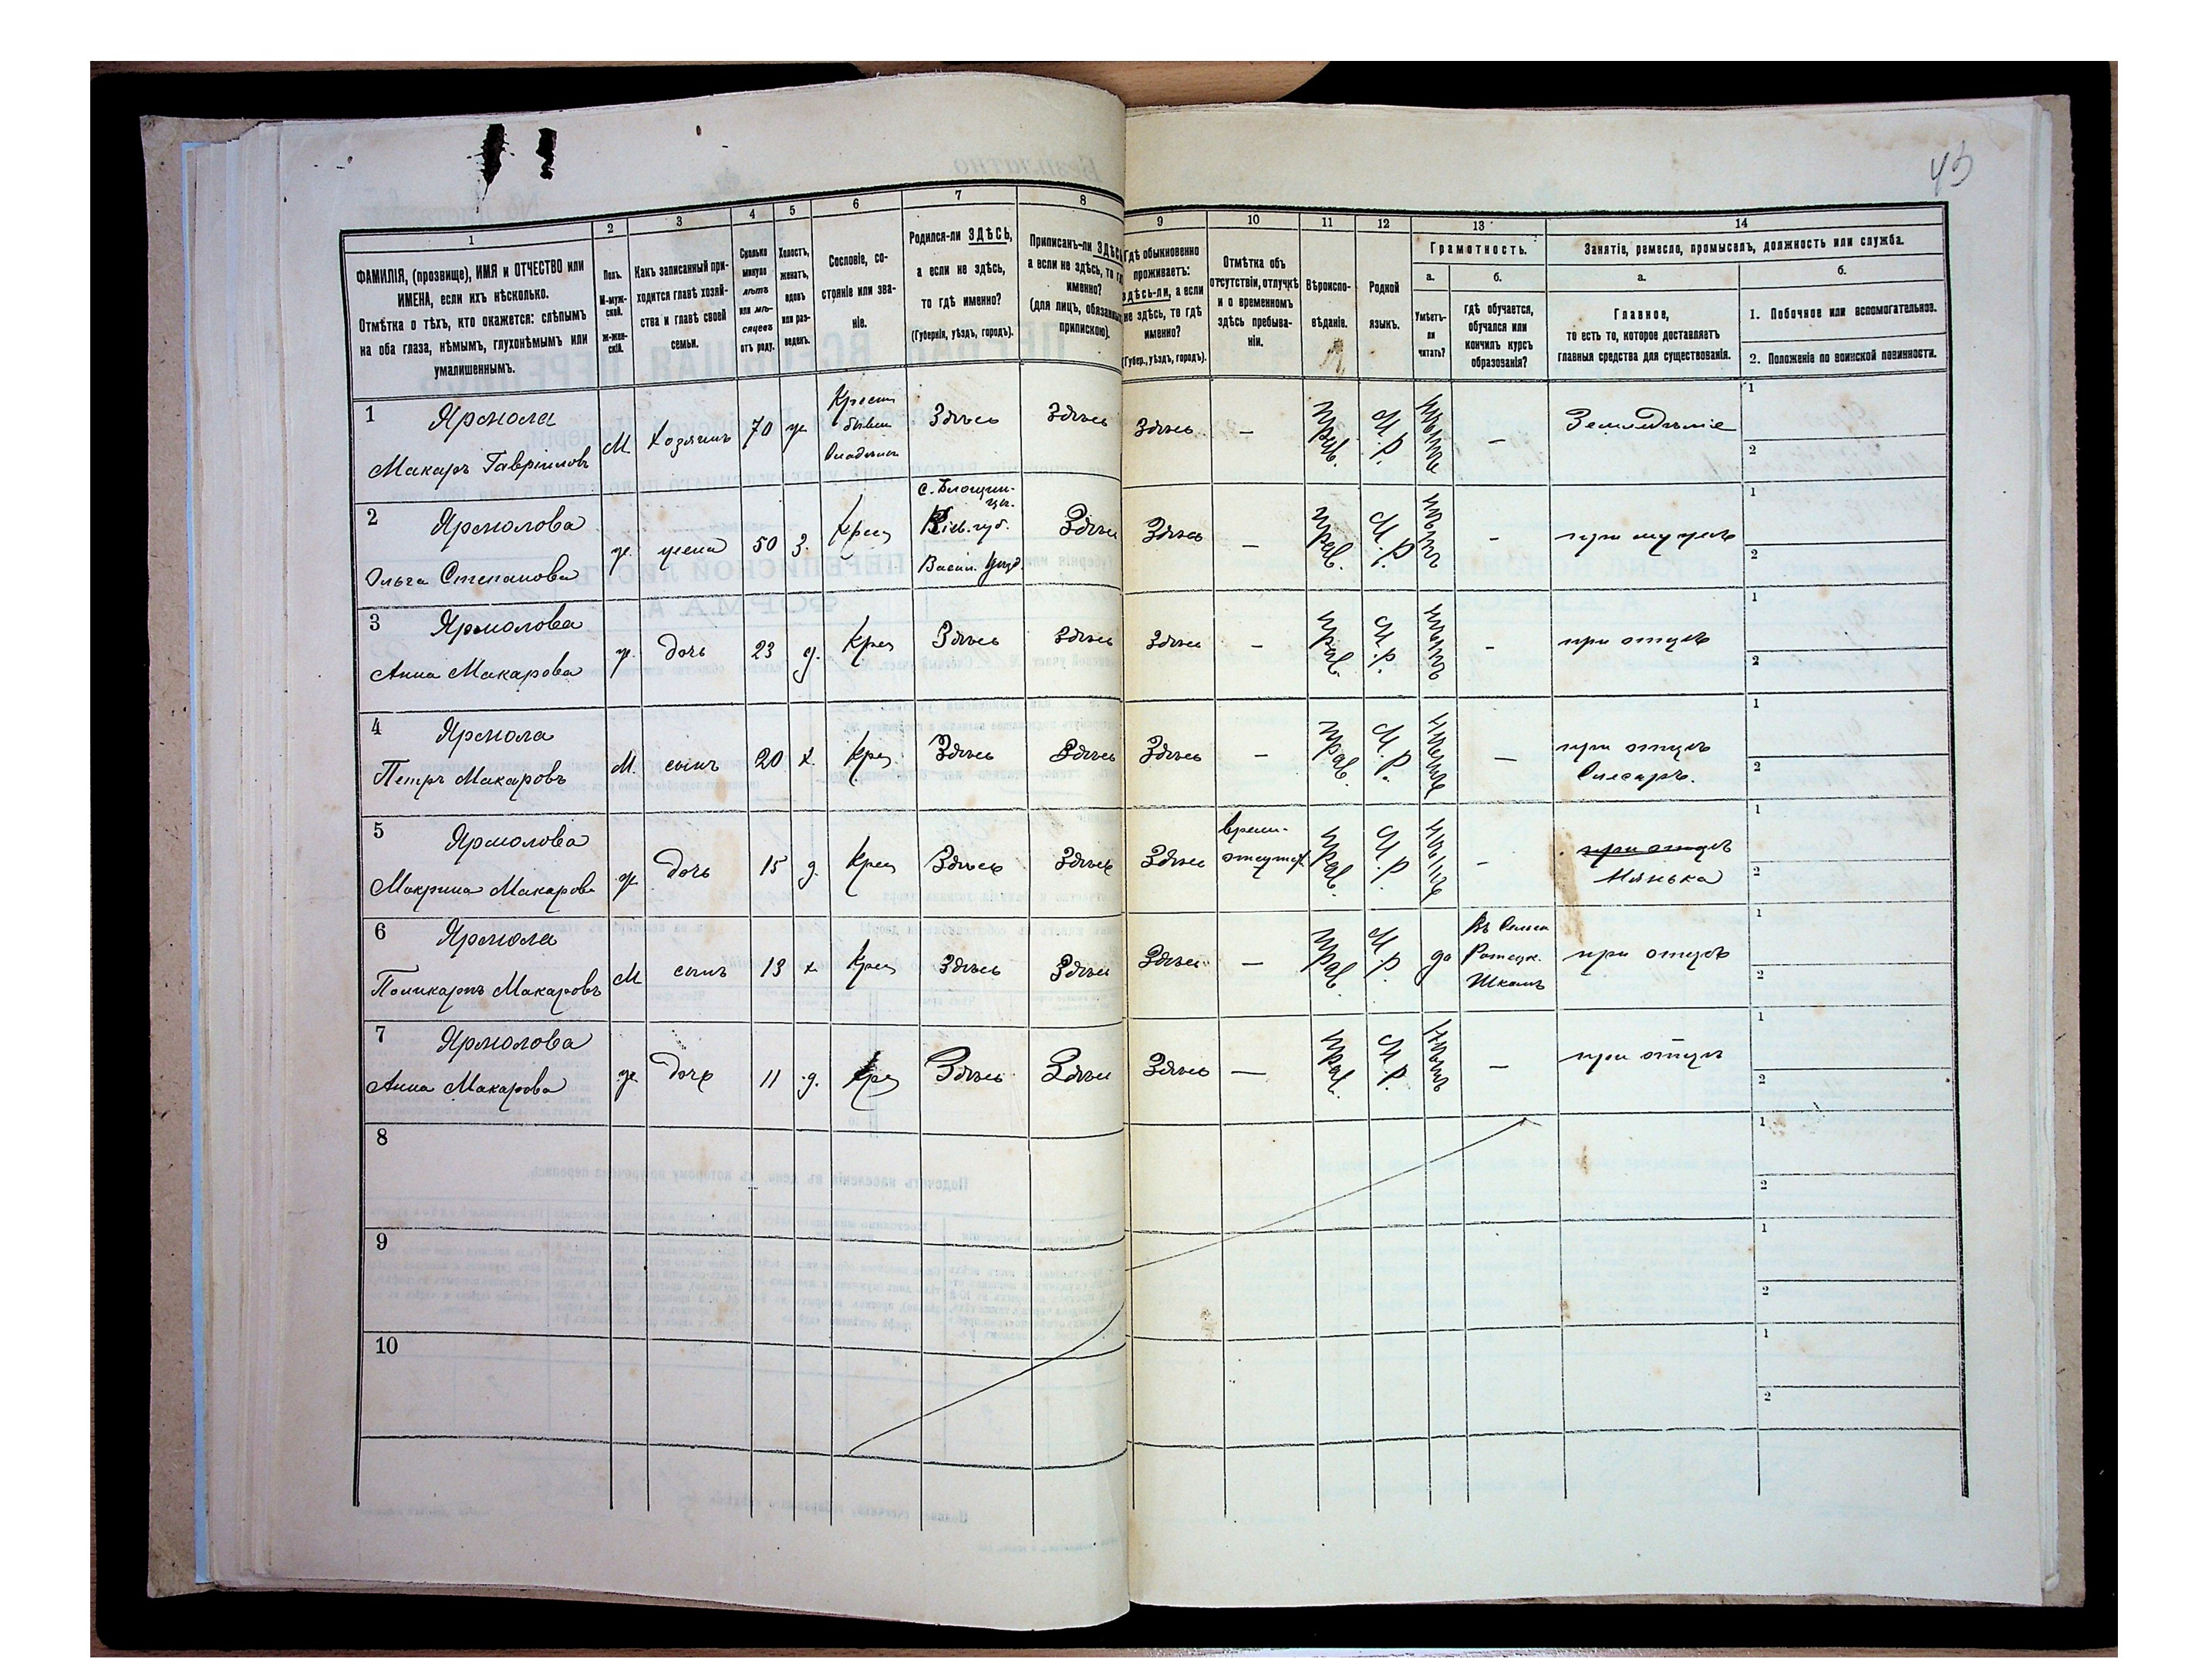 43
1
2
3
4
5
6
7
8
9
10
11
12
13
14
ФАМИЛІЯ, (прозвище), ИМЯ и ОТЧЕСТВО или
ИМЕНА, если ихъ нѣсколько.
Отмѣтка о тѣхъ, кто окажется: слѣпымъ
на оба глаза, нѣмымъ, глухонѣмымъ или
умалишеннымъ.
Полъ.
М-муж-
ской.
Ж-жен-
скій.
Какъ записанный при-
ходится главѣ хозяй-
ства и главѣ своей
семьи.
Сколько
минуло
лѣтъ
или мѣ-
сяцевъ
отъ роду.
Холостъ,
женатъ,
вдовъ
или раз-
веденъ.
Сословіе, со-
стряніе или зва-
ніе.
Родился-ли ЗДѢСЬ,
а если не здѣсь,
то гдѣ именно?
(Губернія, уѣздъ, городъ).
Приписанъ-ли ЗДѢСЬ
а если не здѣсь, то гдѣ
именно?
(для лицъ, обязанныхъ
припискою).
Гдѣ обыкновенно
проживаетъ:
здѣсь-ли, а если
не здѣсь, то гдѣ
именно?
(Губер., уѣздъ, городъ).
Отмѣтка объ
отсутствіи, отлучкѣ
и о временномъ
здѣсь пребыва-
ніи.
Вѣроиспо-
вѣданіе.
Родной
языкъ.
Грамотность.
а.
Умѣетъ-
ли
читать?
б.
гдѣ обучается,
обучался или
кончилъ курсъ
образованія?
Занятіе, ремесло, промыселъ, должность или служба.
а.
Главное,
то есть то, которое доставляетъ
главныя средства для существованія.
б.
1. Побочное или вспомогательное.
2. Положеніе по воинской повинности.
1 Ярмола
Макаръ Гавріиловъ
М
Хозяинъ
70
ж
Крест
бывш
Владѣльч
Здѣсь
Здѣсь
Здѣсь
—
прав.
М.Р.
—
Земледѣліе
1
2
2 Ярмолова
Ольга Степанова
ж.
жена
50
з.
Крес
Кіев. губ.
Васил. Уѣзд.
Здѣсь
Здѣсь
—
прав.
М.Р.
нѣтъ
-
при мужѣ
1
2
3 Ярмолова
Анна Макарова
ж.
дочь
23
д.
Крес
Здѣсь
Здѣсь
Здѣсь
-
прав.
М.Р.
нѣтъ
-
при отцѣ
1
2
4 Ярмола
Петръ Макаровъ
М.
сынъ
20
х.
Крес
Здѣсь
Здѣсь
Здѣсь
—
прав.
М.Р.
—
при отцѣ
Слесарь.
1
2
5 Ярмолова
Макрина Макарова
ж
дочь
15
д.
Крес
Здѣсь
Здѣсь
Здѣсь
врем.
отсутст.
прав.
М.Р.
-
при отцѣ
Нянька
1
2
6 Ярмола
Поликарпъ Макаровъ
М
сынъ
13
х
Крес
Здѣсь
Здѣсь
Здѣсь
—
прав.
М.Р.
да
Въ Сельск
Школѣ
при отцѣ
1
2
7 Ярмолова
Анна Макарова
ж
дочь
11
д.
Крес
Здѣсь
Здѣсь
Здѣсь
—
прав.
М.Р.
нѣтъ
—
при отцѣ
1
2
8
1
2
9
1
2
10
1
2